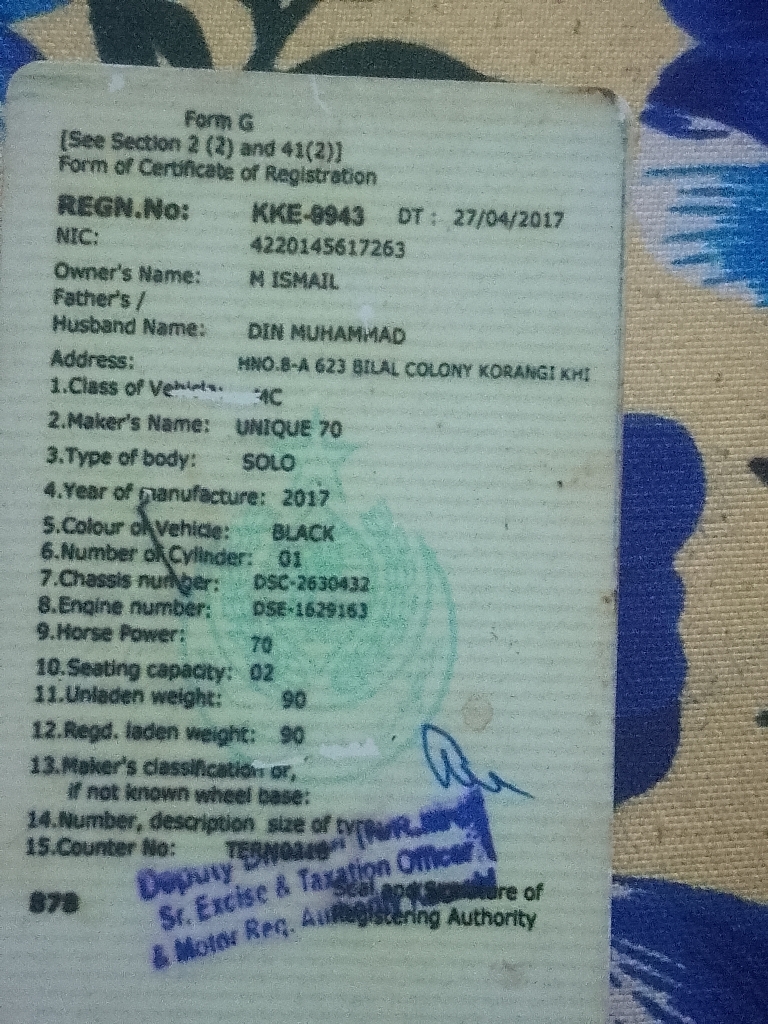 Form G
[See Section 2 (2) and 41(2)]
Form of Certificate of Registration
REGN.No: KKE-9943 DT : 27/04/2017
NIC: 4220145617263
Owner's Name: M ISMAIL
Father's /
Husband Name: DIN MUHAMMAD
Address: HNO.B-A 623 BILAL COLONY KORANGI KHI
1.Class of Vehicle: MC
2.Maker's Name: UNIQUE 70
3.Type of body: SOLO
4.Year of manufacture: 2017
5.Colour of Vehicle: BLACK
6.Number of Cylinder: 01
7.Chassis number: DSC-2630432
8.Engine number: DSE-1629163
9.Horse Power: 70
10.Seating capacity: 02
11.Unladen weight: 90
12.Regd. laden weight: 90
13.Maker's classification or,
if not known wheel base:
14.Number, description size of
15.Counter No:
Deputy
Sr. Excise & Taxation Officer
& Motor Reg.
878
Seal and Signature of
Registering Authority